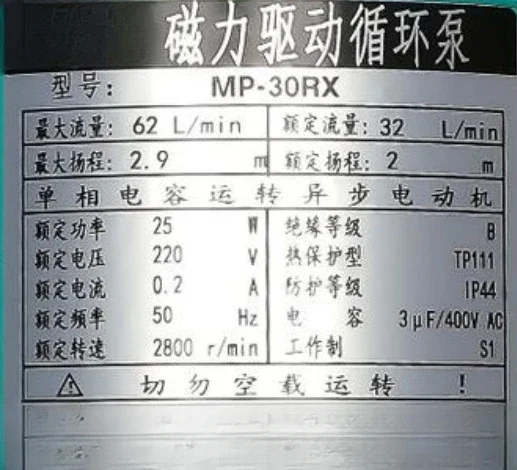 磁力驱动循环泵
型号: MP-30RX
最大流量: 62 L/min 额定流量: 32 L/min
最大扬程: 2.9 m 额定扬程: 2 m
单相电容运转异步电动机
额定功率 25 W 绝缘等级 B
额定电压 220 V 热保护型 TP111
额定电流 0.2 A 防护等级 IP44
额定频率 50 Hz 电容 3μF/400V AC
额定转速 2800 r/min 工作制 S1
⚠ 切勿空载运转 !